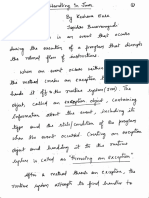 Handling In Java
By Keshava Rao
an event that occurs
during the execution of a program that disrupts
the normal flow of instructions.
When an event occurs within
the method creates an exception
hands it off to the runtime system(JVM). The
object, called an exception object, containing
information about the event, including it's
type and the state/condition of the program
when the event occurred. Creating an exception
object and handling it to the runtime
system is called as "Throwing an Exception"
After a method throws an exception, the
runtime system attempts to find handler to